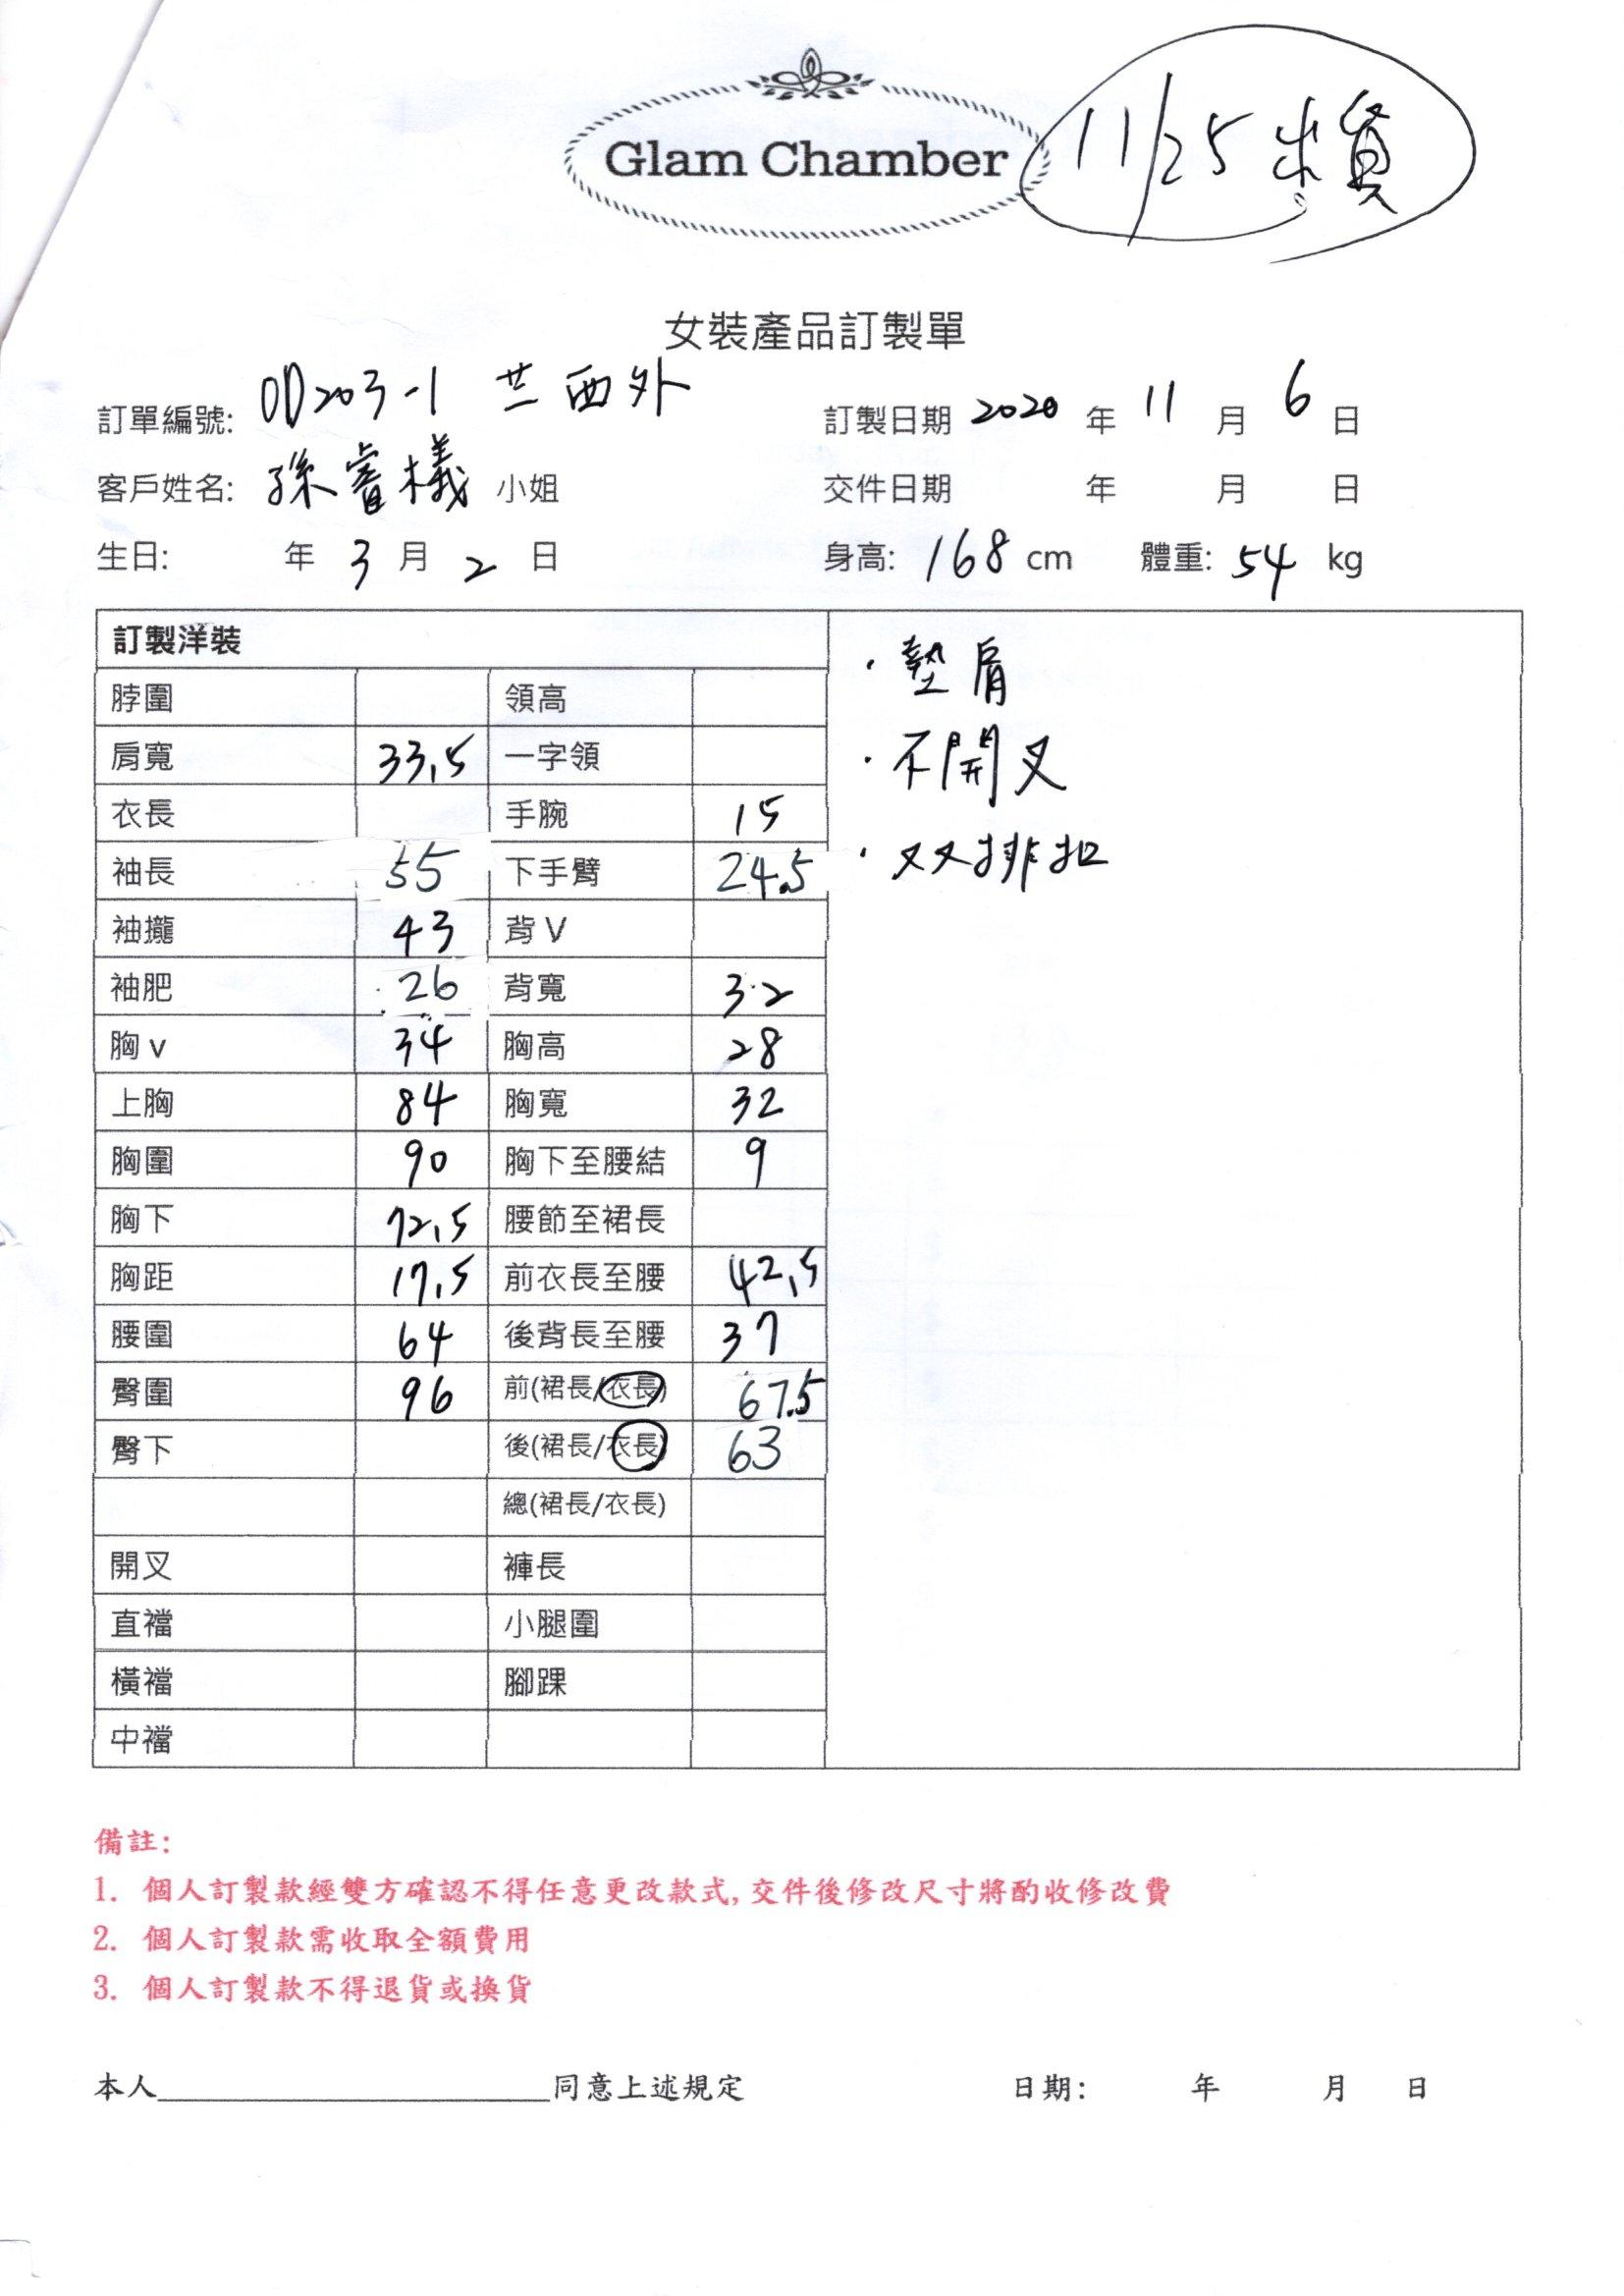 Glam Chamber
11/25
女裝產品訂製單
訂單編號: OD203-1 西外
訂製日期 2020 年 11 月 6 日
客戶姓名: 孫睿檥 小姐
交件日期 年 月 日
生日: 年 3 月 2 日
身高: 168 cm 體重: 54 kg
訂製洋裝
脖圍 領高
肩寬 33.5 一字領
衣長 手腕 15
袖長 55 下手臂 24.5
袖攏 43 背V
袖肥 26 背寬 32
胸v 34 胸高 28
上胸 84 胸寬 32
胸圍 90 胸下至腰結 9
胸下 72.5 腰節至裙長
胸距 17.5 前衣長至腰 42.5
腰圍 64 後背長至腰 37
臀圍 96 前(裙長/衣長) 67.5
臀下 後(裙長/衣長) 63
總(裙長/衣長)
開叉 褲長
直襠 小腿圍
橫襠 腳踝
中襠
·墊肩
·不開叉
·双排扣
備註:
1. 個人訂製款經雙方確認不得任意更改款式,交件後修改尺寸將酌收修改費
2. 個人訂製款需收取全額費用
3. 個人訂製款不得退貨或換貨
本人____________________同意上述規定
日期: 年 月 日